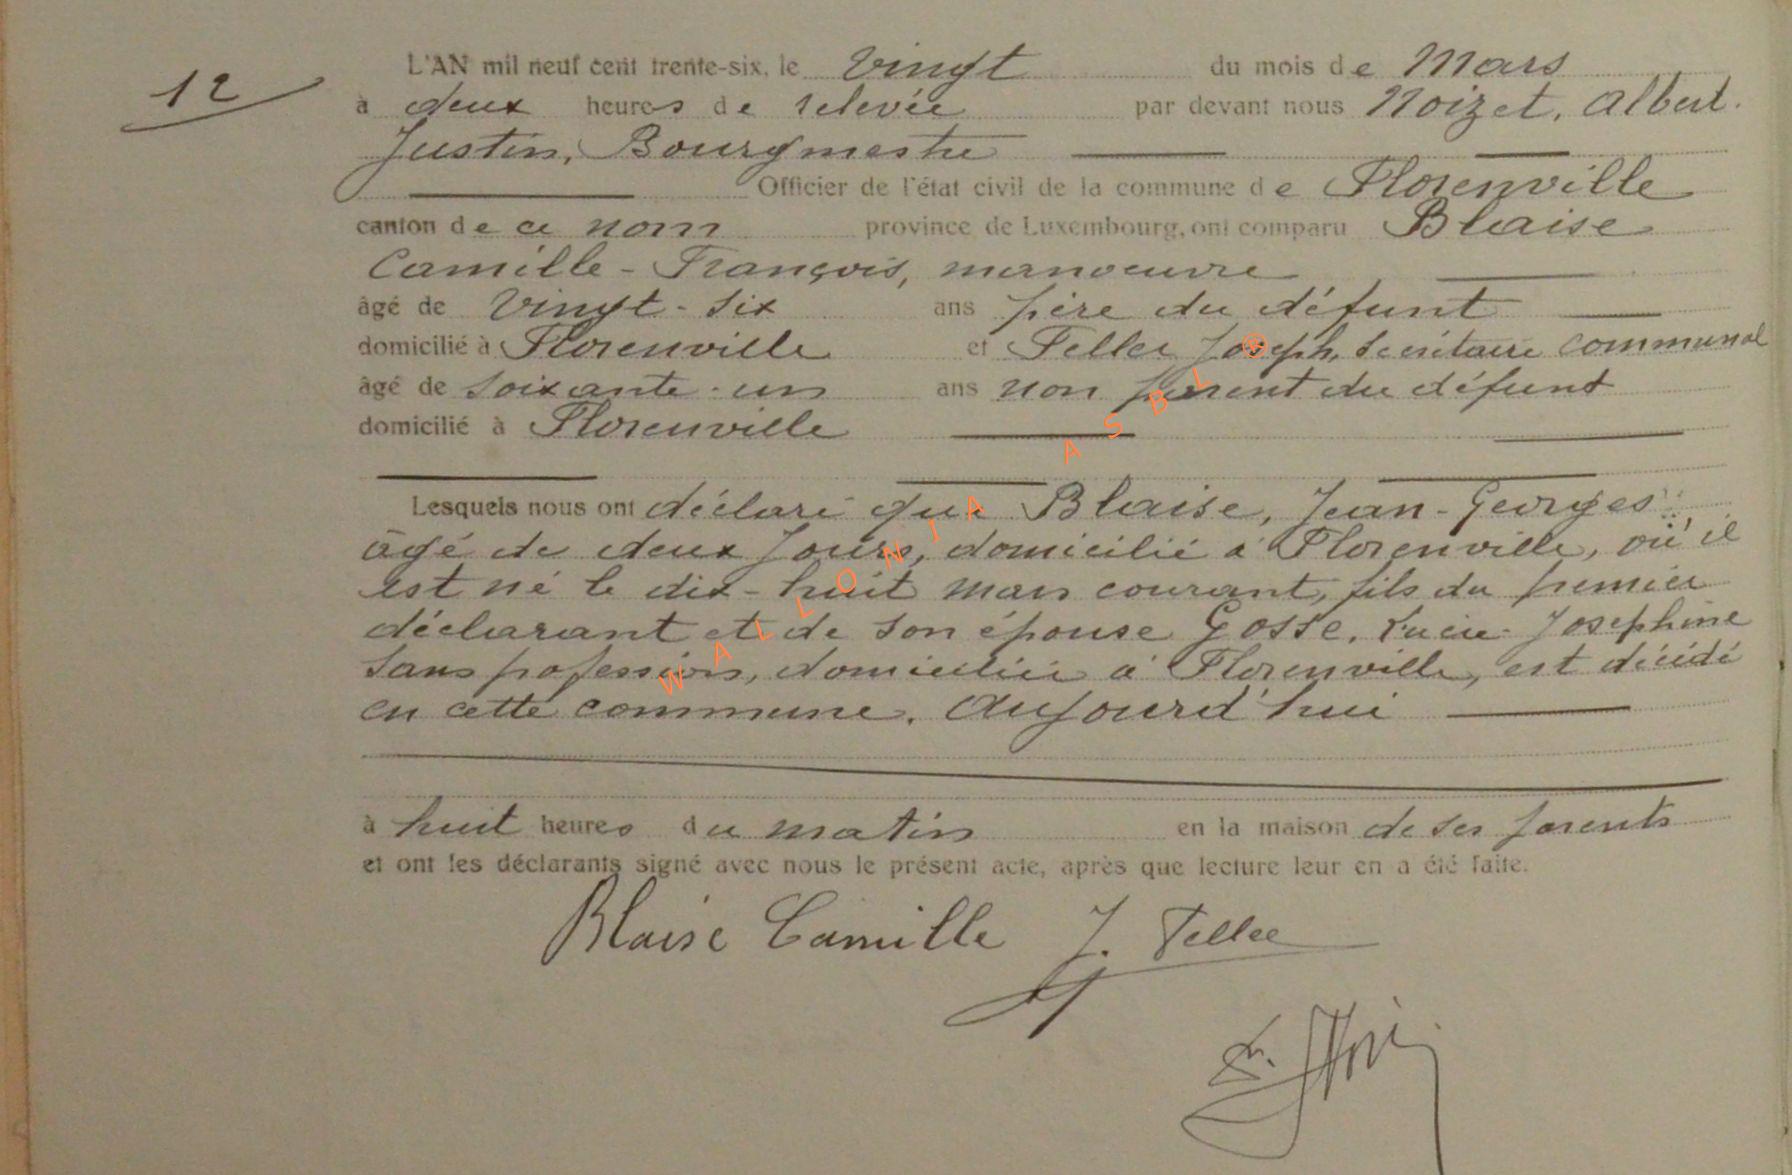 12
L'AN mil neuf cent trente-six, le vingt du mois de Mars
à deux heures de relevée par devant nous Noizet, Albert.
Justin, Bourgmestre
Officier de l'état civil de la commune de Florenville
canton de ce nom province de Luxembourg, ont comparu Blaise
Camille-François, manoeuvre
âgé de vingt-six ans père du défunt
domicilié à Florenville et Feller Joseph, Secrétaire communal
âgé de soixante-un ans non parent du défunt
domicilié à Florenville
Lesquels nous ont déclaré que Blaise, Jean-Georges
âgé de deux jours, domicilié à Florenville, où il
est né le dix-huit mars courant, fils du premier
déclarant et de son épouse Gosse, Lucie-Joséphine
sans profession, domiciliée à Florenville, est décédé
en cette commune. Aujourd'hui
à huit heures du matin en la maison de ses parents
et ont les déclarants signé avec nous le présent acte, après que lecture leur en a été faite.
Blaise Camille J. Feller
WALLONIA ASBL ®